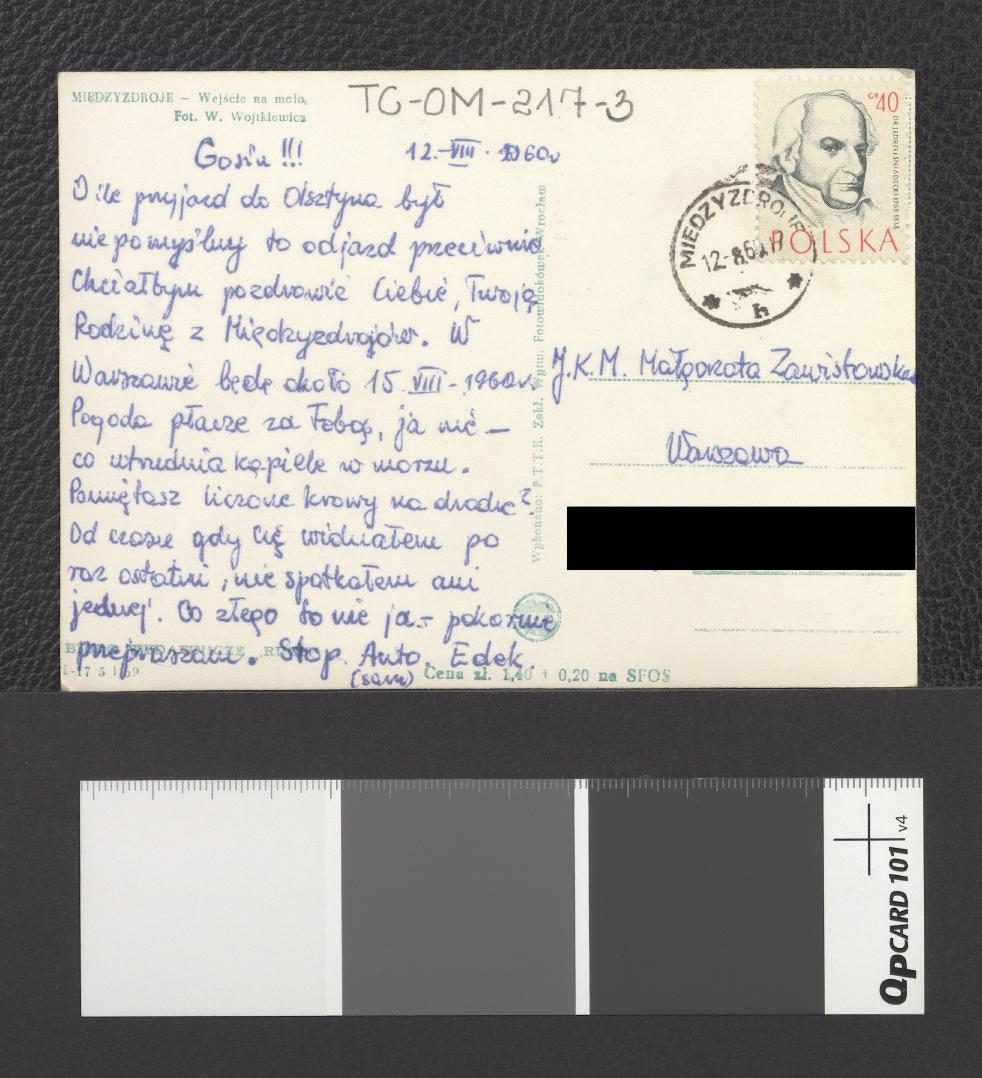 MIĘDZYZDROJE — Wejście na molo,
Fot. W. Wojtkiewicz
TG-OM-217-3
Gosiu !!! 12.-VIII. 1960r
O ile przyjazd do Olsztyna był
niepomyślny to odjazd przeciwnie
Chciałbym pozdrowić Ciebie, Twoją
Rodzinę z Międzyzdrojów. W
Warszawie będę około 15.VIII-1960r.
Pogoda płacze za Tobą, ja nie —
co utrudnia kąpiele w morzu.
Pamiętasz liczone krowy na drodze?
Od czasu gdy Cię widziałem po
raz ostatni, nie spotkałem ani
jednej. Co złego to nie ja.- pokornie
przepraszam. Stop. Auto. Edek.
(sam)
BIURO WYDAWNICZE „RUCH"
Cena zł. 1,40 + 0,20 na SFOS
Wykonano: P.T.T.K. Zakł. Wytw. Fotowidokówek Wrocław
GR 40
DR JĘDRZEJ ŚNIADECKI 1768-1838
POLSKA
MIĘDZYZDROJE
12-8.60
h
J.K.M. Małgorzata Zawistowska
Warszawa
QPCARD 101 v4